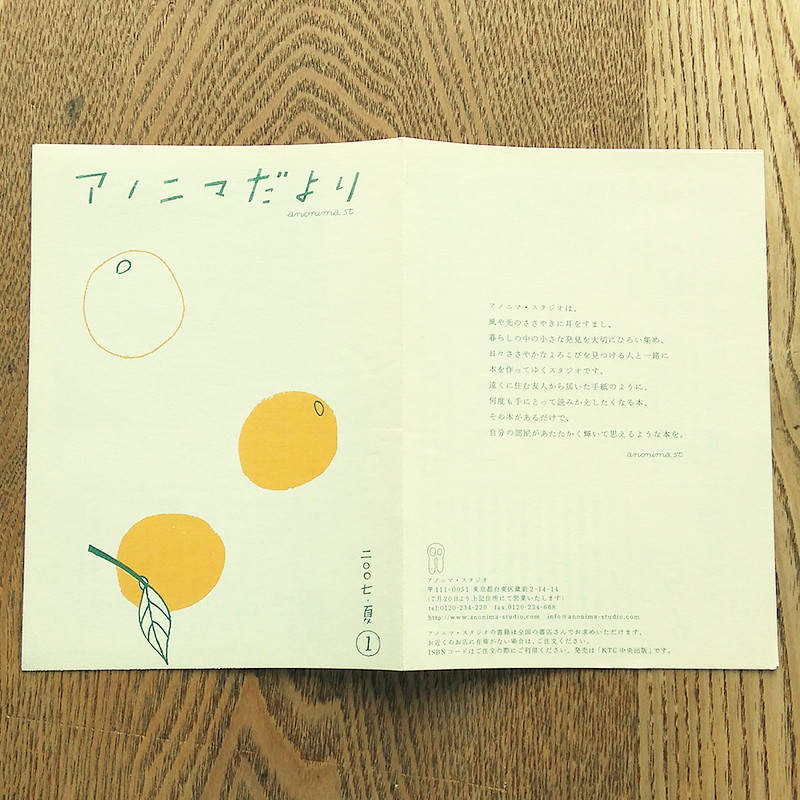 アノニマだより
anonima st
二〇〇七・夏
1
アノニマ・スタジオは、
風や光のささやきに耳をすまし、
暮らしの中の小さな発見を大切にひろい集め、
日々ささやかなよろこびを見つける人と一緒に
本を作ってゆくスタジオです。
遠くに住む友人から届いた手紙のように、
何度も手にとって読みかえしたくなる本、
その本があるだけで、
自分の部屋があたたかく輝いて思えるような本を。
anonima st
アノニマ・スタジオ
〒111-0051 東京都台東区蔵前2-14-14
(7月20日より上記住所にて営業いたします)
tel.0120-234-220 fax.0120-234-668
http://www.anonima-studio.com info@anonima-studio.com
アノニマ・スタジオの書籍は全国の書店さんでお求めいただけます。
お近くのお店に在庫がない場合は、ご注文ください。
ISBNコードはご注文の際にご利用ください。発売は「KTC中央出版」です。